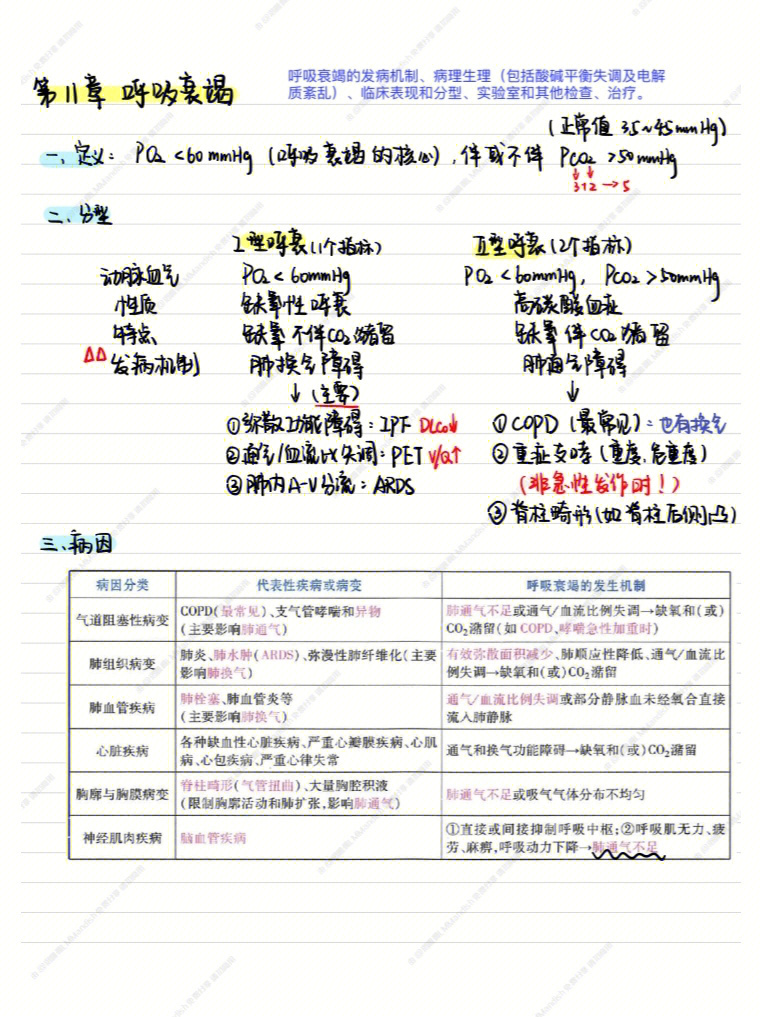 呼吸衰竭的发病机制、病理生理（包括酸碱平衡失调及电解
质紊乱）、临床表现和分型、实验室和其他检查、治疗。
第11章 呼吸衰竭
(正常值 35~45mmHg)
一、定义： PO₂<60mmHg (呼吸衰竭的核心)，伴或不伴 PCO₂>50mmHg
↓ ↓
3+2→5
二、分型
I型呼衰(1个指标) II型呼衰(2个指标)
动脉血气 PO₂<60mmHg PO₂<60mmHg, PCO₂>50mmHg
性质 缺氧性呼衰 高碳酸血症
特点 缺氧不伴CO₂潴留 缺氧伴CO₂潴留
△△发病机制 肺换气障碍 肺通气障碍
↓(主要) ↓
①弥散功能障碍：IPF DLCO↓ ①COPD (最常见)：也有换气
②通气/血流比失调：PET V/Q↑ ②重症支哮 (重度、危重度)
③肺内A-V分流：ARDS (非急性发作时！)
③脊柱畸形(如脊柱后侧凸)
三、病因
病因分类 代表性疾病或病变 呼吸衰竭的发生机制
气道阻塞性病变 COPD(最常见)、支气管哮喘和异物 肺通气不足或通气/血流比例失调→缺氧和(或)
(主要影响肺通气) CO2潴留(如COPD、哮喘急性加重时)
肺组织病变 肺炎、肺水肿(ARDS)、弥漫性肺纤维化(主要 有效弥散面积减少、肺顺应性降低、通气/血流比
影响肺换气) 例失调→缺氧和(或)CO2潴留
肺血管疾病 肺栓塞、肺血管炎等 通气/血流比例失调或部分静脉血未经氧合直接
(主要影响肺换气) 流入肺静脉
心脏疾病 各种缺血性心脏疾病、严重心瓣膜疾病、心肌 通气和换气功能障碍→缺氧和(或)CO2潴留
病、心包疾病、严重心律失常
胸廓与胸膜病变 脊柱畸形(气管扭曲)、大量胸腔积液 肺通气不足或吸气气体分布不均匀
(限制胸廓活动和肺扩张,影响肺通气)
神经肌肉疾病 脑血管疾病 ①直接或间接抑制呼吸中枢；②呼吸肌无力、疲
劳、麻痹,呼吸动力下降→肺通气不足